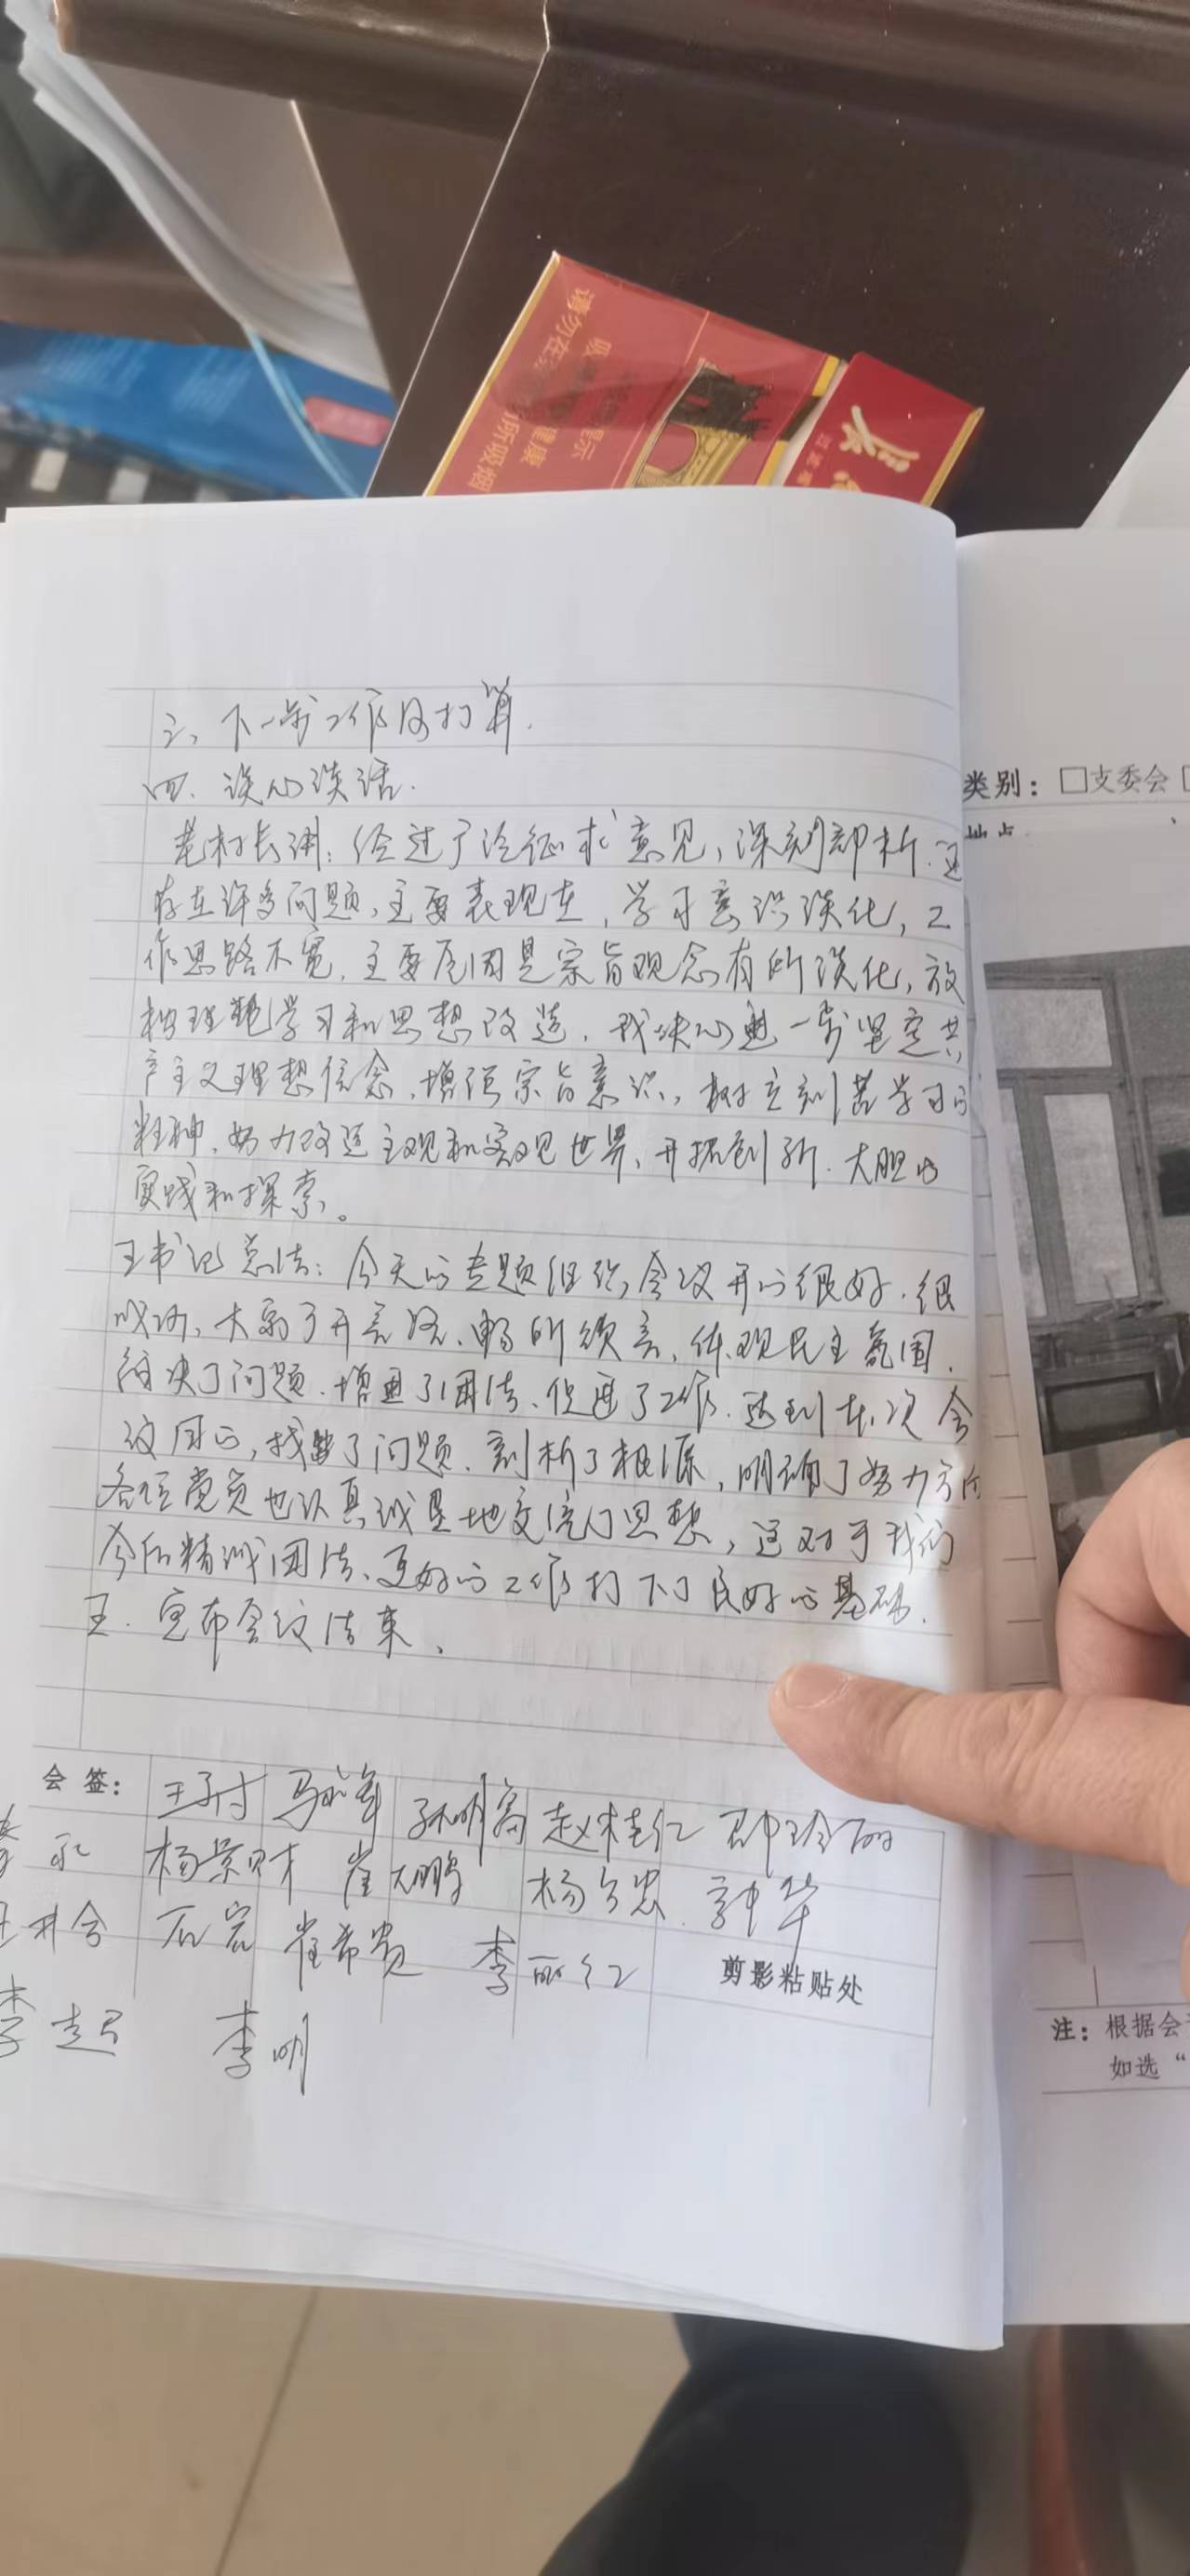 三、下一步工作及打算.
四、谈心谈话.
村长讲：经过广泛征求意见，深刻剖析.还
存在许多问题，主要表现在，学习意识淡化，工
作思路不宽，主要原因是宗旨观念有所淡化，放
松理论学习和思想改造，我决心进一步坚定共
产主义理想信念，增强宗旨意识，树立刻苦学习的
精神，努力改造主观和客观世界，开拓创新.大胆的
实践和探索。
王书记总结：今天的专题组织会议开的很好.很
成功、大家广开言路、畅所欲言，体现民主氛围，
解决了问题.增进了团结、促进了工作.达到本次会
议目的，找出了问题.剖析了根源，明确了努力方向
各位党员也认真诚恳地交流了思想，这对于我们
今后精诚团结、更好的工作打下了良好的基础.
王.宣布会议结束、
会签：
孙明高 赵桂仁
杨景财 崔大鹏 杨 忠 华
石宏 崔希贵 李丽红
李超 李明
剪影粘贴处
类别：□支委会
地点
注：根据会
如选“
请勿在 所吸烟
吸 健康